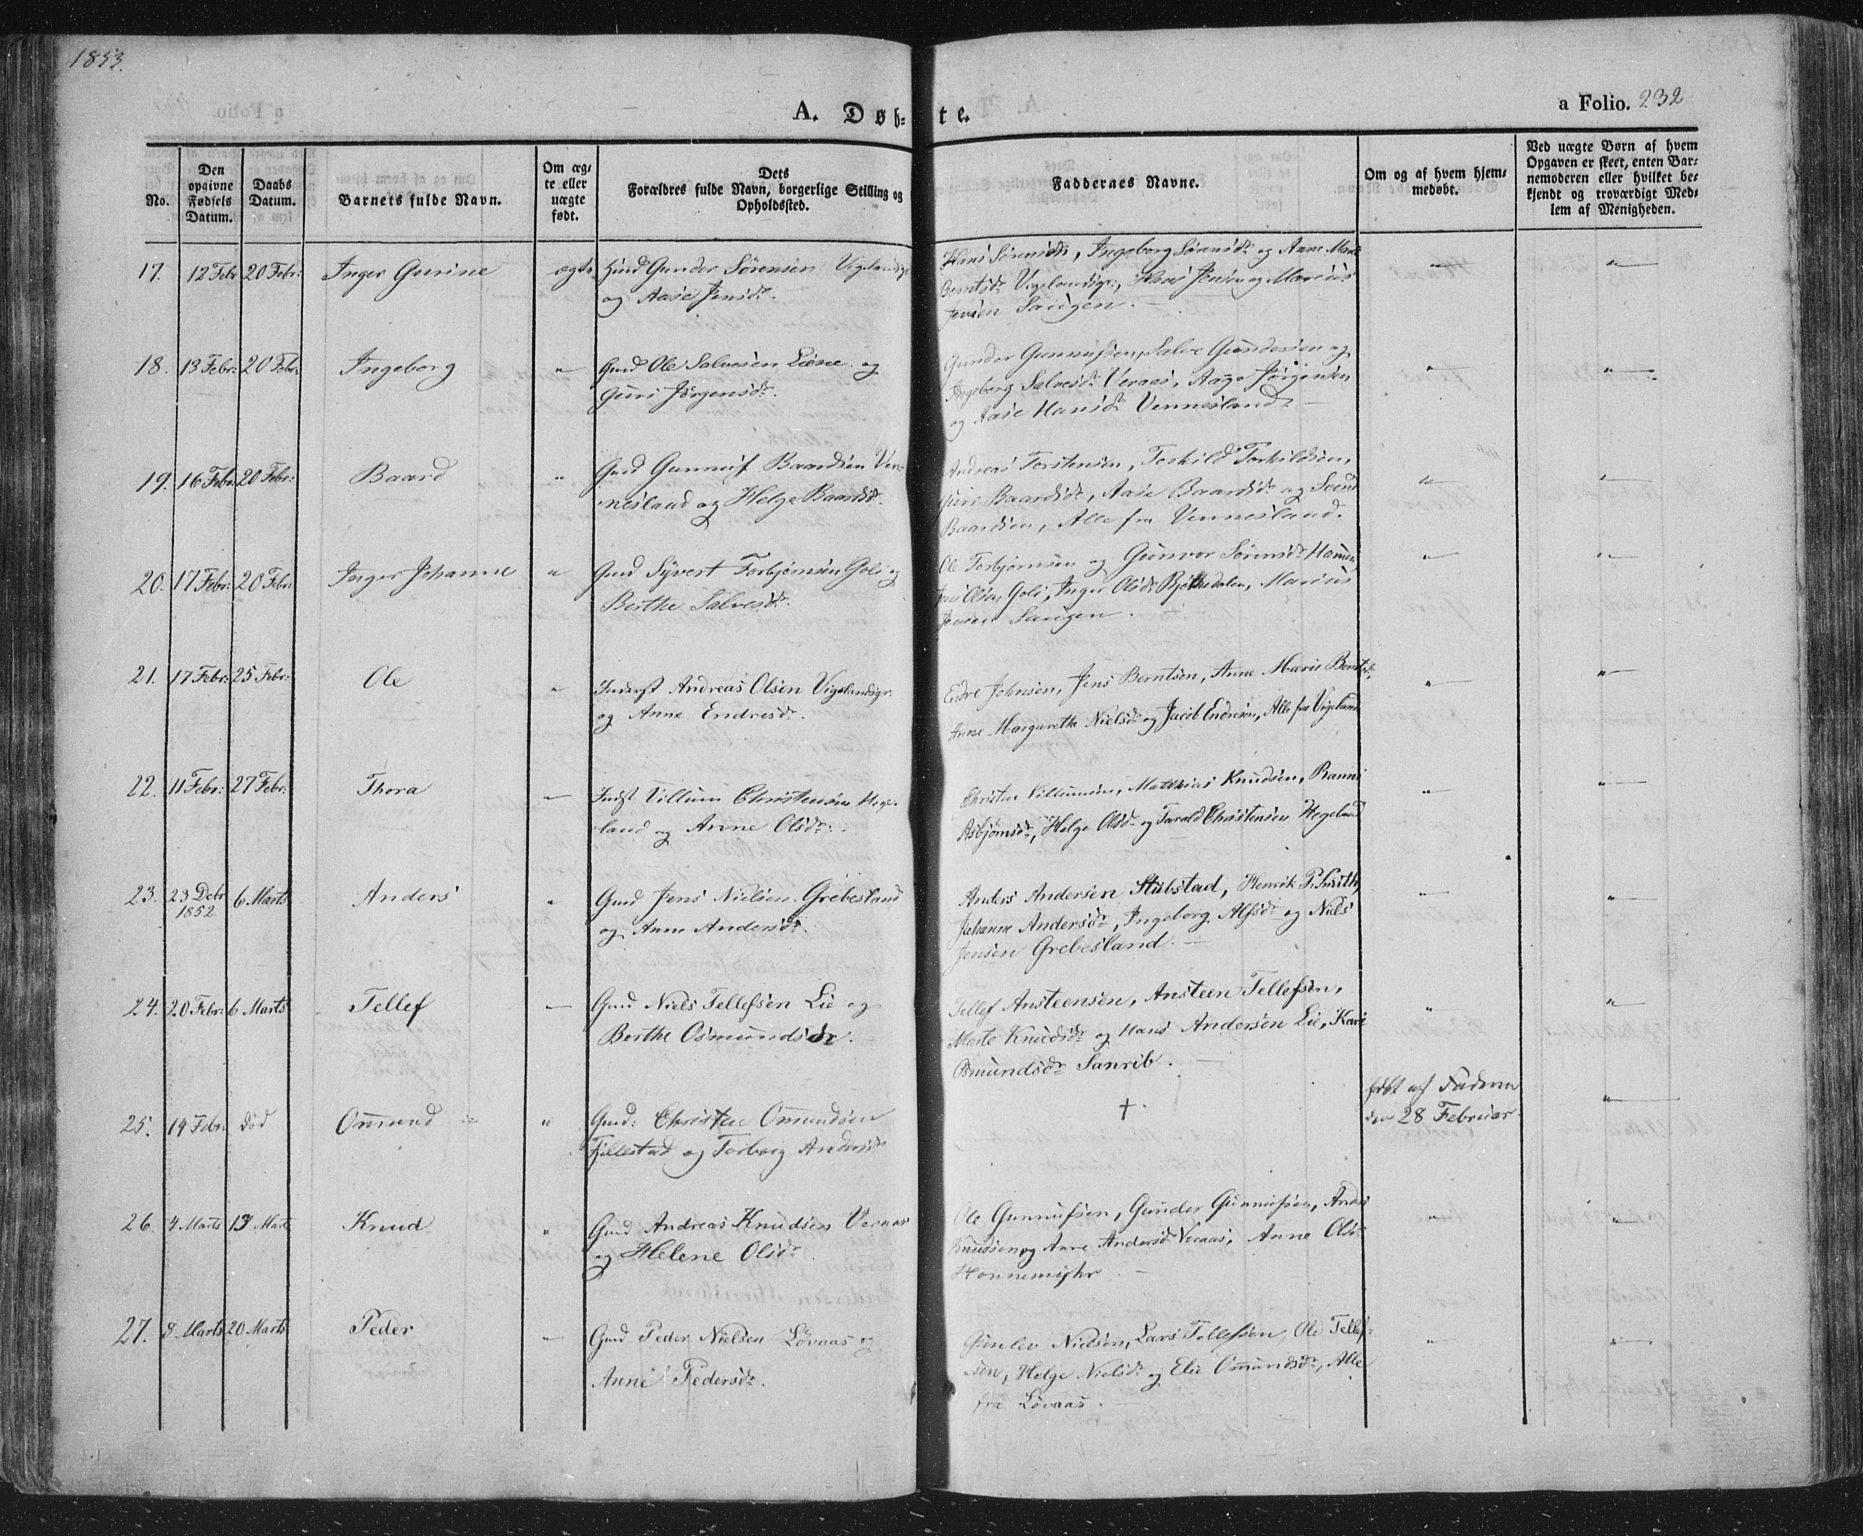 1853.
A. Døb-te.
a Folio. 232
No.
Den opgivne Fødsels Datum.
Daabs Datum.
Barnets fulde Navn.
Om ægte eller uægte født.
Dets
Forældres fulde Navn, borgerlige Stilling og
Opholdssted.
Faddernes Navne.
Om og af hvem hjemmedøbt.
Ved uægte Børn af hvem
Opgaven er skeet, enten Bar-
nemoderen eller hvilket be-
kjendt og troværdigt Med-
lem af Menigheden.
17. 12 Febr 20 Febr: Inger Gurine ægte Gunder Sørensen Vigelandsgr
og Aase Jensdr.
Hans Sørensen, Ingeborg Sørensdr og Anne Marie
Berntsdr Vigelandsgr., Hans Jensen og Marius
Jensen Saugen. —
18. 13 Febr: 20 Febr: Ingeborg " Gmd Ole Salvesen Liene og
Guri Jørgensdr.
Gunder Gunnufsen, Salve Gundersen og
Ingeborg Salvesdr Veraas, Aage Jørgensen
og Aase Hansdr Vennesland —
19. 16 Febr: 20 Febr: Baard " Gmd Gunnuf Baardsen Ven-
nesland og Helge Baardsdr.
Andreas Torstensen, Torkild Torkildsen,
Guri Baardsdr, Aase Baardsdr og Svend
Baardsen, Alle fra Vennesland.
20. 17 Febr: 20 Febr: Inger Johanne " Gmd Syvert Torbjørnsen Goli og
Berthe Salvesdr.
Ole Torbjørnsen og Gunvor Sørensdr
Jens Olsen Goli, Inger Olsdr, Marius
Jensen Saugen.
21. 17 Febr: 25 Febr: Ole " Inderst Andreas Olsen Vigelandsgr.
og Anne Endresdr.
Endre Johnsen, Jens Berntsen, Anne Marie Berntsdr,
Anne Margarethe Nielsdr og Jacob Endresen, Alle fra Vigeland
22. 11 Febr: 27 Febr: Thora — Indst Villum Christensen Hege-
land og Anne Olsdr.
Christen Villumsen, Matthias Knudsen, Ranni
Asbjørnsdr, Helge Olsdr og Tarald Christensen Hegeland
23. 23 Debr 1852 6 Marts Anders " Gmd Jens Nielsen Grebesland
og Anne Andersdr.
Anders Andersen Stubstad, Henrik P. Smith,
Johanne Andersdr, Ingeborg Alfsdr og Niels
Jensen Grebesland. —
24. 20 Febr: 6 Marts Tellef — Gmd Niels Tellefsen Lie og
Berthe Osmundsdr.
Tellef Ansteensen, Ansteen Tellefsen,
Marte Knudsdr og Hans Andersen Lie, Kari
Osmundsdr Sanrib. —
25. 19 Febr: død Omund " Gmd: Christen Omundsen
Fjellestad og Torborg Andersdr
†.
døbt af Faderen
den 28 Februar.
26. 4 Marts 13 Marts Knud " Gmd Andreas Knudsen Veraas
og Helene Olsdr.
Ole Gunnufsen, Gunder Gunnufsen, Anders
Knudsen og Anne Andersdr Veraas, Anne Olsdr
27. 8 Marts 20 Marts Peder " Gmd Peder Nielsen Løvaas og
Anne Pedersdr.
Gunlev Nielsen, Lars Tellefsen, Ole Tellef-
sen, Helge Nielsdr og Elie Omundsdr, Alle
fra Løvaas. —